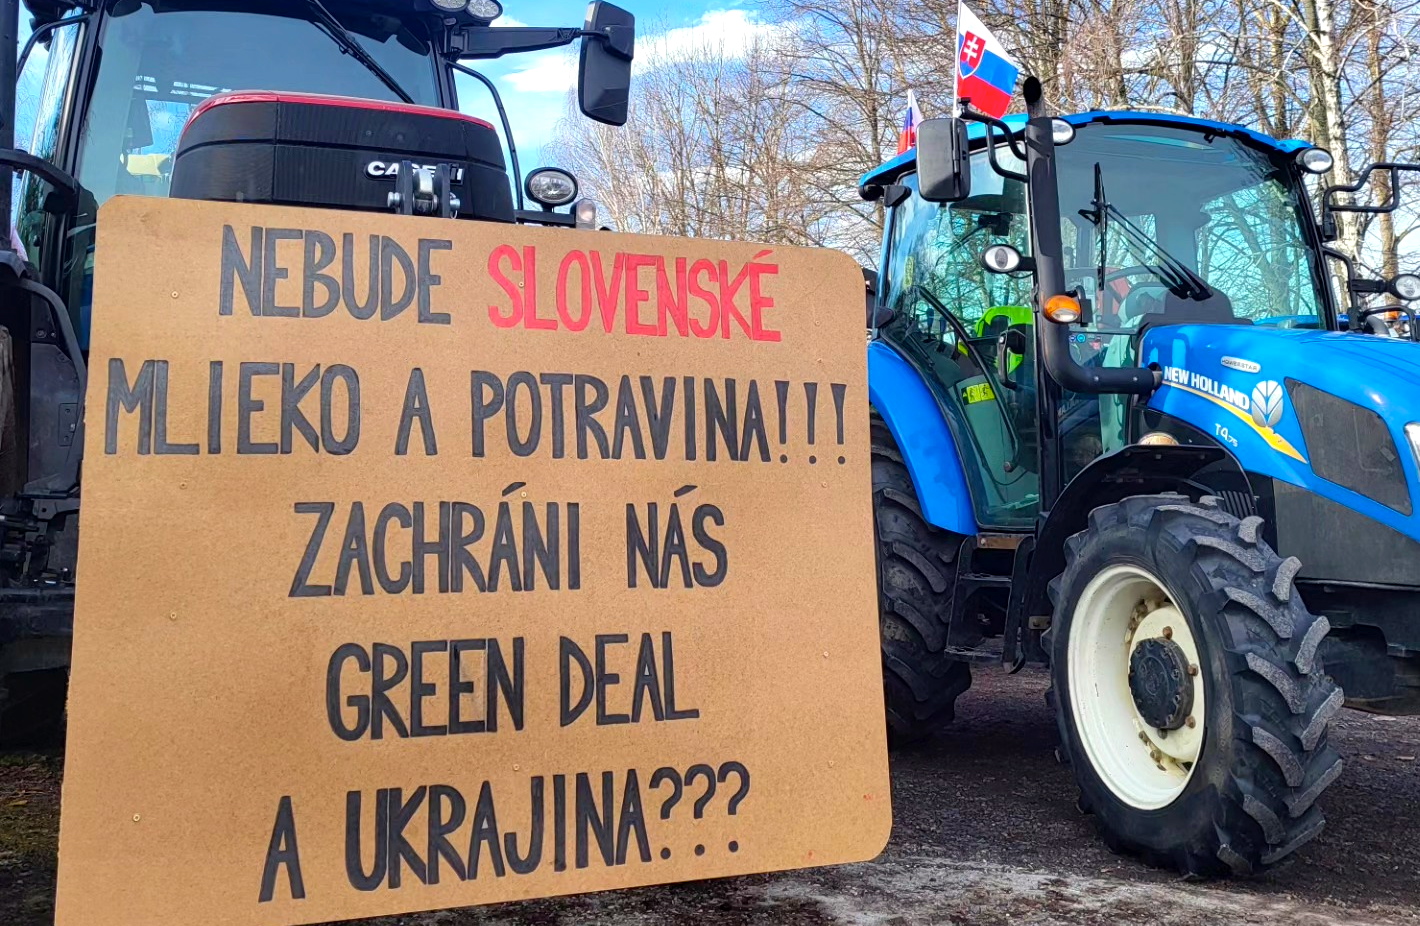 CASE IH
NEBUDE SLOVENSKÉ
MLIEKO A POTRAVINA!!!
ZACHRÁNI NÁS
GREEN DEAL
A UKRAJINA???
POWERSTAR
NEW HOLLAND
T4.75